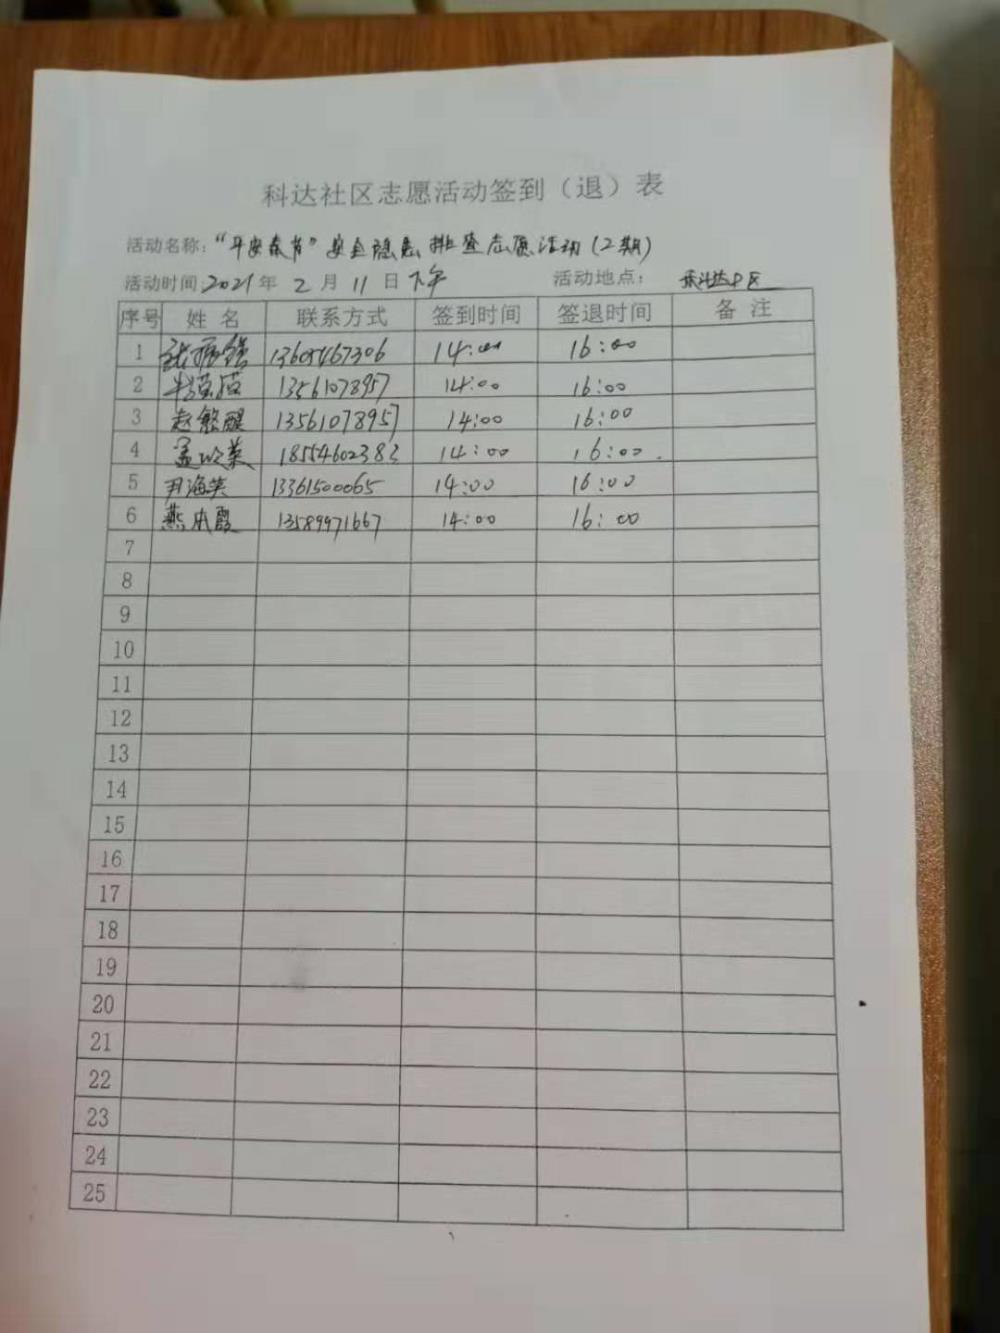 科达社区志愿活动签到（退）表
活动名称：“平安春节”安全隐患排查志愿活动（2期）
活动时间 2021年 2月 11日下午 活动地点：
序号 姓名 联系方式 签到时间 签退时间 备注
1 13605467306 14:00 16:00
2 13561078957 14:00 16:00
3 13561078957 14:00 16:00
4 18554602383 14:00 16:00
5 尹海英 13361500065 14:00 16:00
6 13589971667 14:00 16:00
7
8
9
10
11
12
13
14
15
16
17
18
19
20
21
22
23
24
25